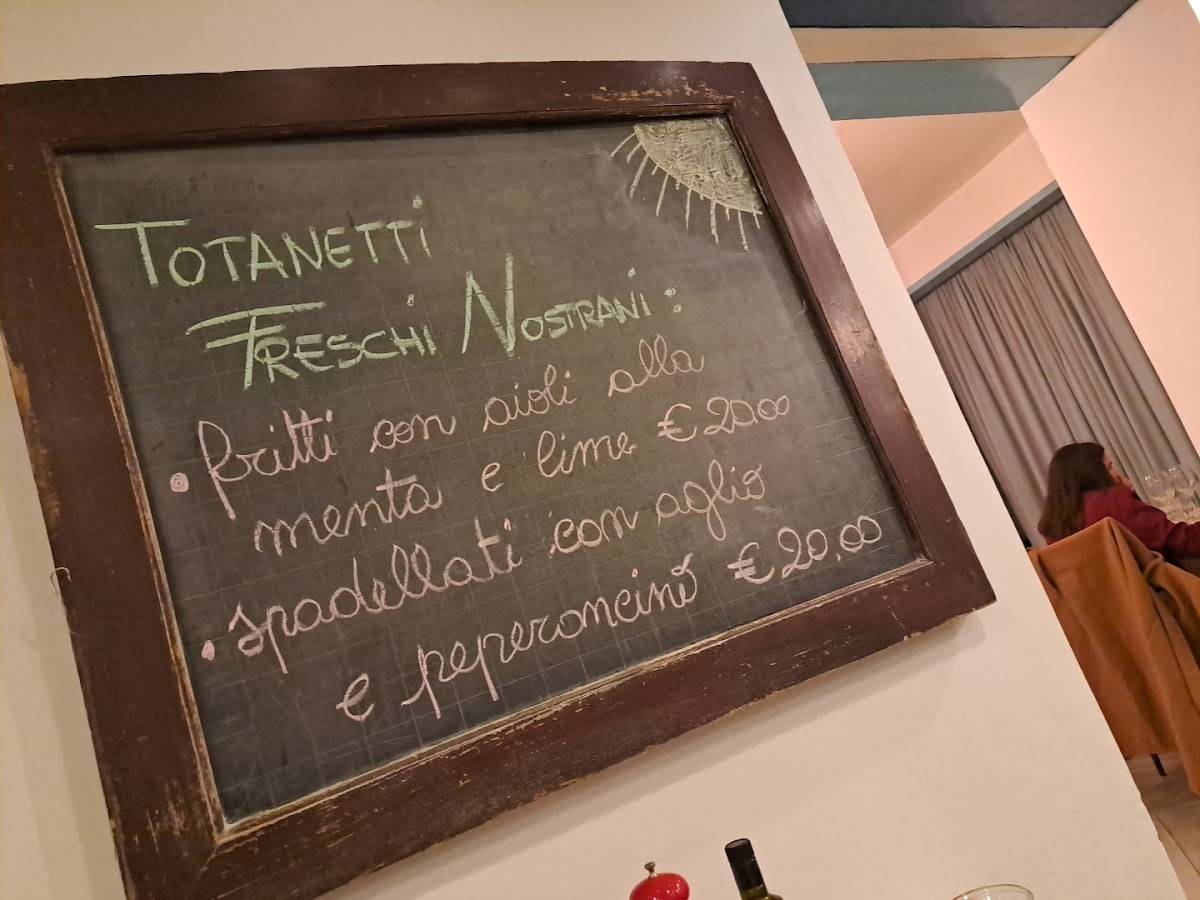 TOTANETTI
FRESCHI NOSTRANI:
• fritti con aioli alla
menta e lime € 20.00
• spadellati con aglio
e peperoncino € 20,00